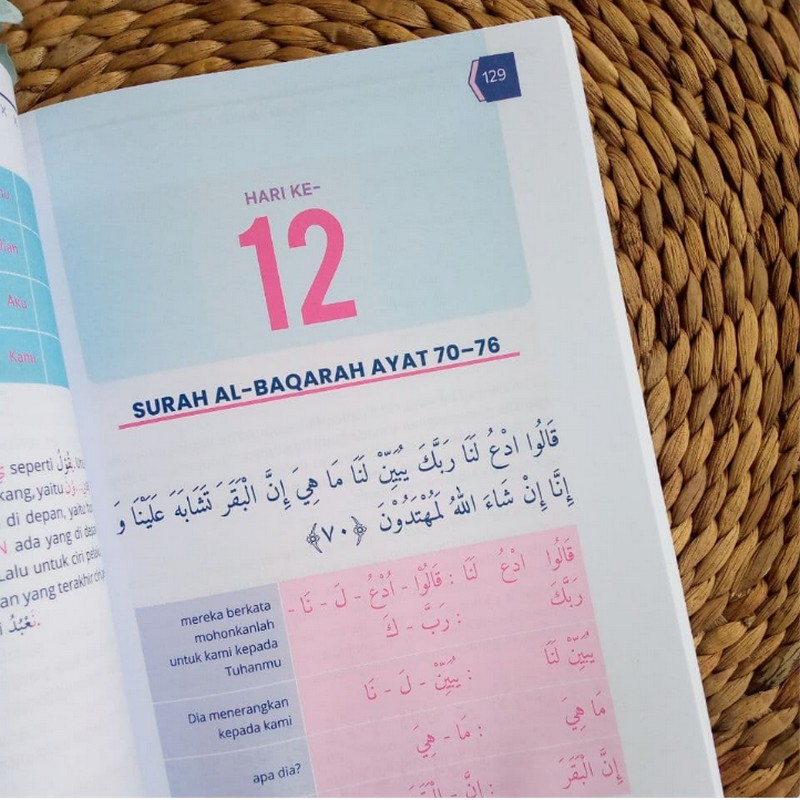 129
HARI KE-
12
SURAH AL-BAQARAH AYAT 70-76
قَالُوا ادْعُ لَنَا رَبَّكَ يُبَيِّنْ لَنَا مَا هِيَ إِنَّ الْبَقَرَ تَشَابَهَ عَلَيْنَا وَ
إِنَّا إِنْ شَاءَ اللهُ لَمُهْتَدُوْنَ ﴿٧٠﴾
قَالُوا ادْعُ لَنَا : قَالُوْا - اُدْعُ - لَ - نَا -
رَبَّكَ : رَبَّ - كَ
mereka berkata
mohonkanlah
untuk kami kepada
Tuhanmu
يُبَيِّنْ لَنَا : يُبَيِّنْ - لَ - نَا
Dia menerangkan
kepada kami
مَا هِيَ : مَا - هِيَ
apa dia?
إِنَّ الْبَقَرَ : إِنَّ - الْبَقَرَ
Aku
Kami
seperti يَقُولُ
kang, yaitu
di depan, yaitu
ada yang di
Lalu untuk ciri
an yang terakhir
نَعْبُدُ